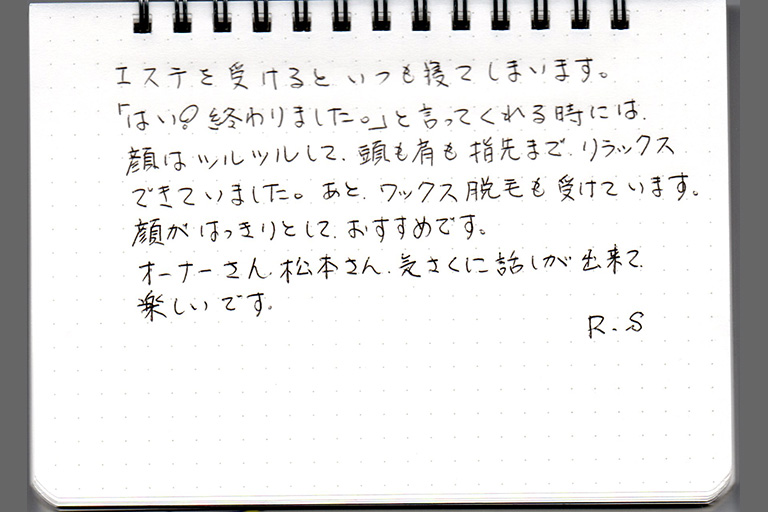 エステを受けるといつも寝てしまいます。
「はい♀終わりました。」と言ってくれる時には、
顔はツルツルして、頭も肩も指先まで、リラックス
できていました。あと、ワックス脱毛も受けています。
顔がはっきりとして、おすすめです。
オーナーさん、松本さん、気さくに話しが出来て、
楽しいです。
R.S